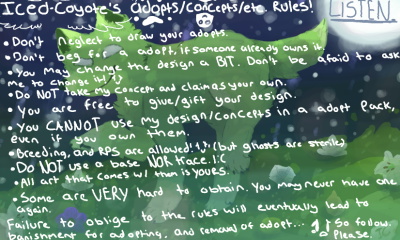 Iced-Coyote's adopts/concepts/etc. Rules!
LISTEN.
• Don't neglect to draw your adopts.
• Don't beg for a adopt, if someone already owns it.
• You may change the design a BIT. Don't be afraid to ask
me to change it!
• Do NOT take my concept and claim as your own.
• You are free to give/gift your design.
• You CANNOT use my design/concepts in a adopt pack,
even if you own them.
• Breeding, and RPS are allowed!!! (but ghosts are sterile)
• Do NOT use a base NOR trace. I:C
• All art that comes w/ then is yours.
• Some are VERY hard to obtain. You may never have one
again.
Failure to oblige to the rules will eventually lead to
banishment for adopting, and removal of adopt... So follow.
Please.